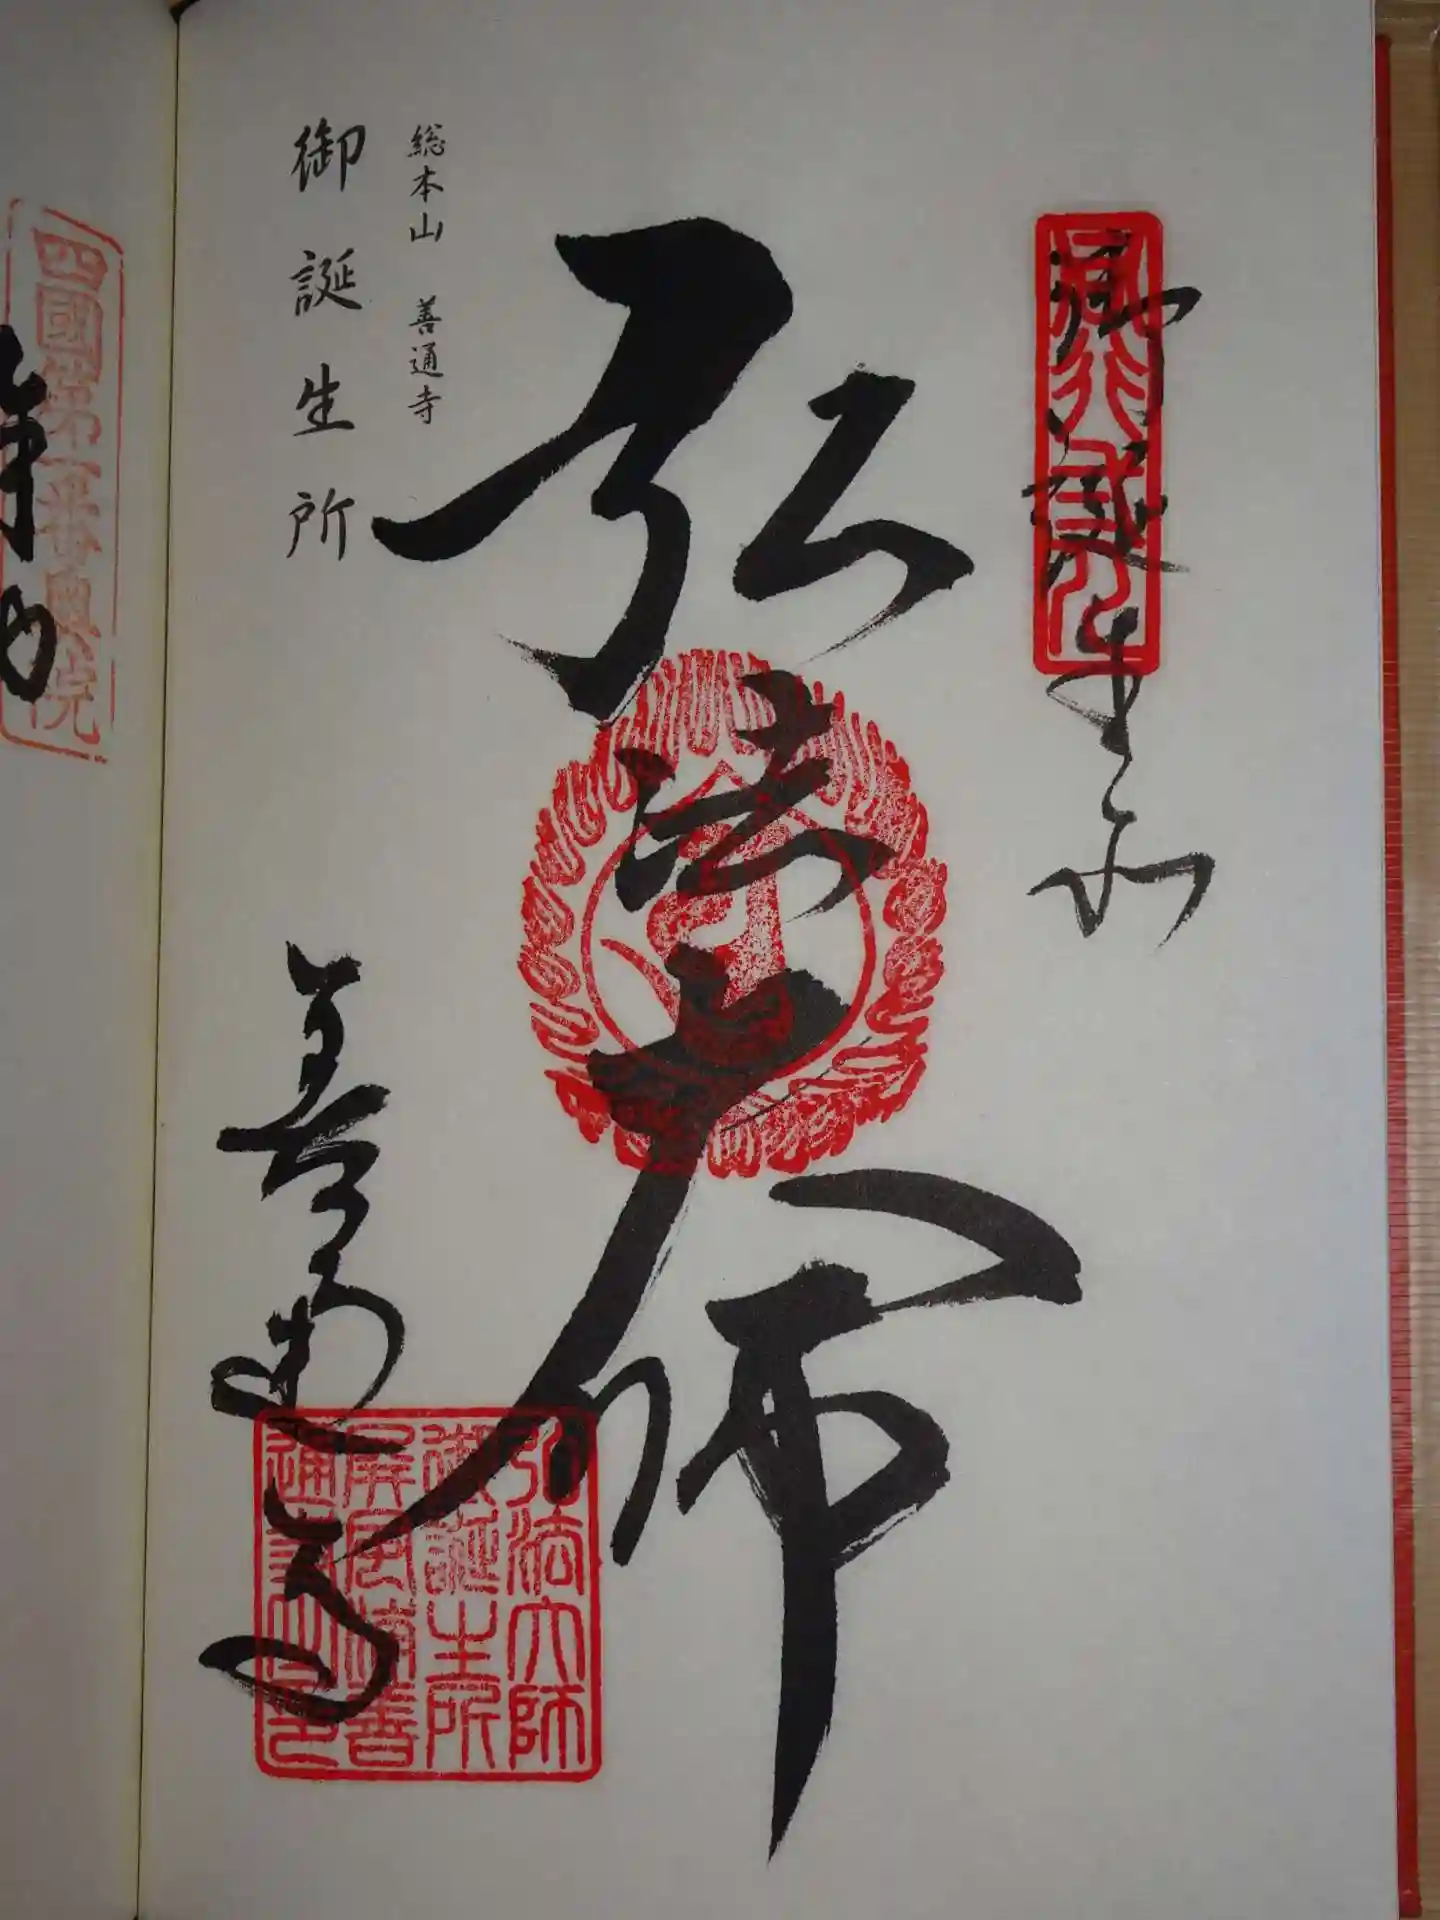 御誕生所
減行盛化
弘法大師
総本山 善通寺
御誕生所
善通寺
弘法大師
御誕生所
屏風浦善
通寺之印
四國第一番奥院